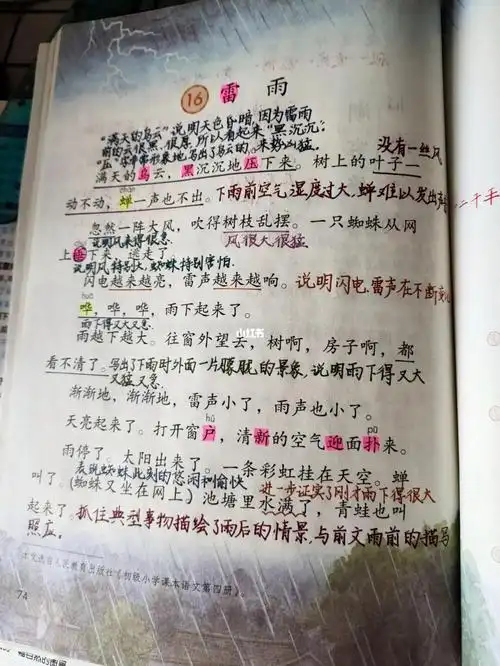 16 雷雨
“满天的乌云”说明天色昏暗,因为雷雨
前的云很黑、很厚,所以看起来“黑沉沉”。
“压”字非常形象地写出了乌云的
没有一丝风
满天的乌云,黑沉沉地压下来。树上的叶子一
chán
动不动,蝉一声也不出。下雨前空气湿度过大,蝉难以发出声
忽然一阵大风,吹得树枝乱摆。一只蜘蛛从网
说明风来得很急 风很大很猛
上垂下来,逃走了。
说明风特别大,蜘蛛特别害怕
闪电越来越亮,雷声越来越响。说明闪电、雷声在不断变
huā
哗,哗,哗,雨下起来了。
雨下得又大又急
雨越下越大。往窗外望去,树啊,房子啊,都
看不清了。写出了下雨时外面一片朦胧的景象,说明雨下得又大
又猛又急
渐渐地,渐渐地,雷声小了,雨声也小了。
hù pū
天亮起来了。打开窗户,清新的空气迎面扑来。
雨停了。太阳出来了。一条彩虹挂在天空。蝉
表现蜘蛛此刻的悠闲和愉快
叫了。(蜘蛛又坐在网上)池塘里水满了,青蛙也叫
进一步证实了刚才雨下得很大
起来了。抓住典型事物描绘了雨后的情景,与前文雨前的描写
照应。
本文选自人民教育出版社《初级小学课本语文第四册》。
74
小红书